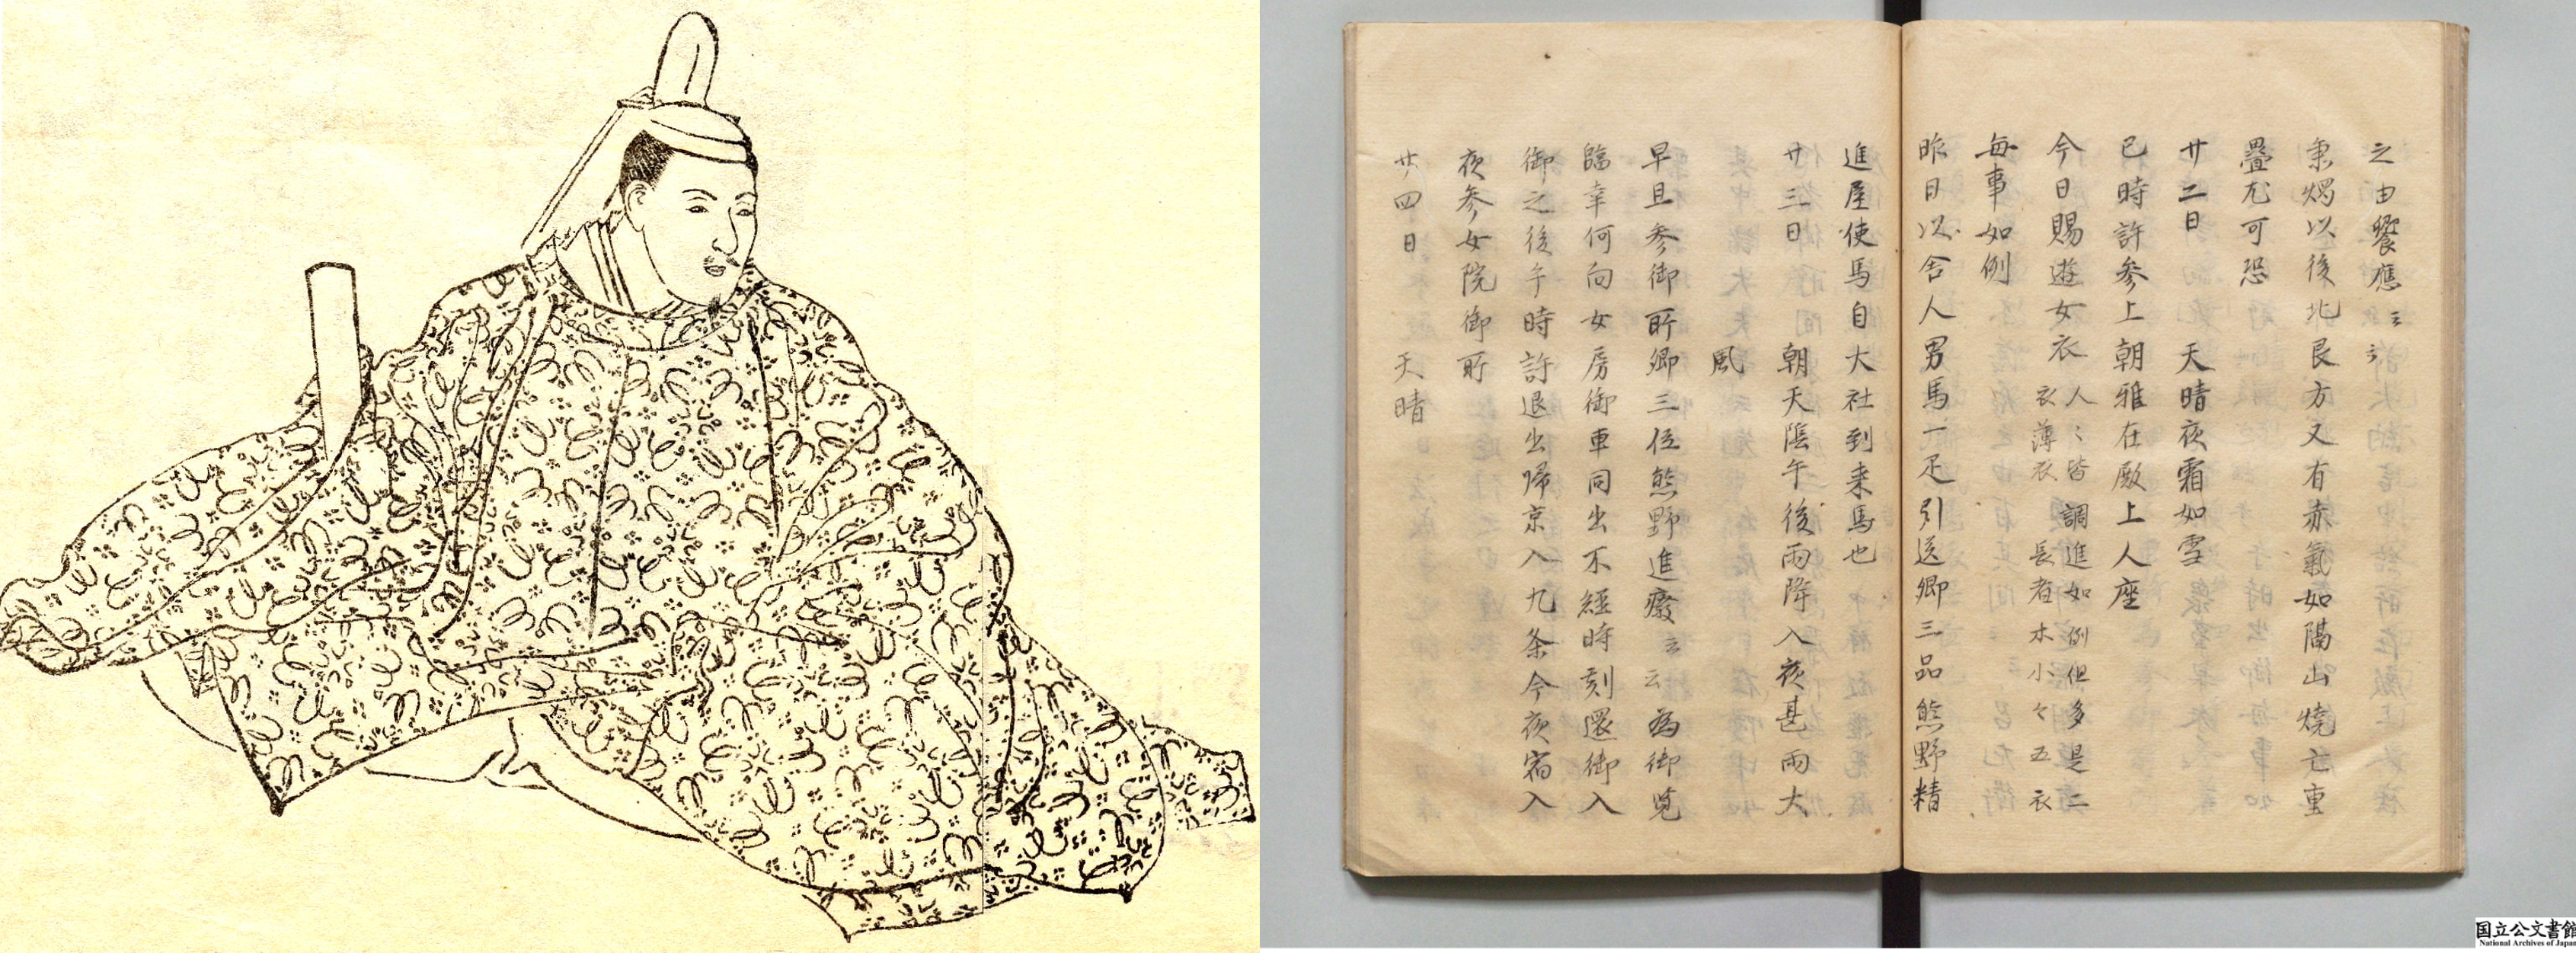 之由饗應云云
秉燭以後北艮方又有赤氣如隔山燒亡重
疊尤可恐
廿二日　天晴夜霜如雪
巳時許参上朝雅在殿上人座
今日賜遊女衣　人々皆調進如例但多是二
衣薄衣　長者木小々五衣
毎事如例
昨日以舎人男馬一疋引送卿三品熊野精
進屋使馬自大社到来馬也
廿三日　朝天陰午後雨降入夜甚雨大
風
早旦参御所卿三位熊野進癈云云為御覧
臨幸何向女房御車同出不經時刻還御入
御之後午時許退出歸京入九条今夜宿入
夜参女院御所
廿四日　天晴
国立公文書館
National Archives of Japan